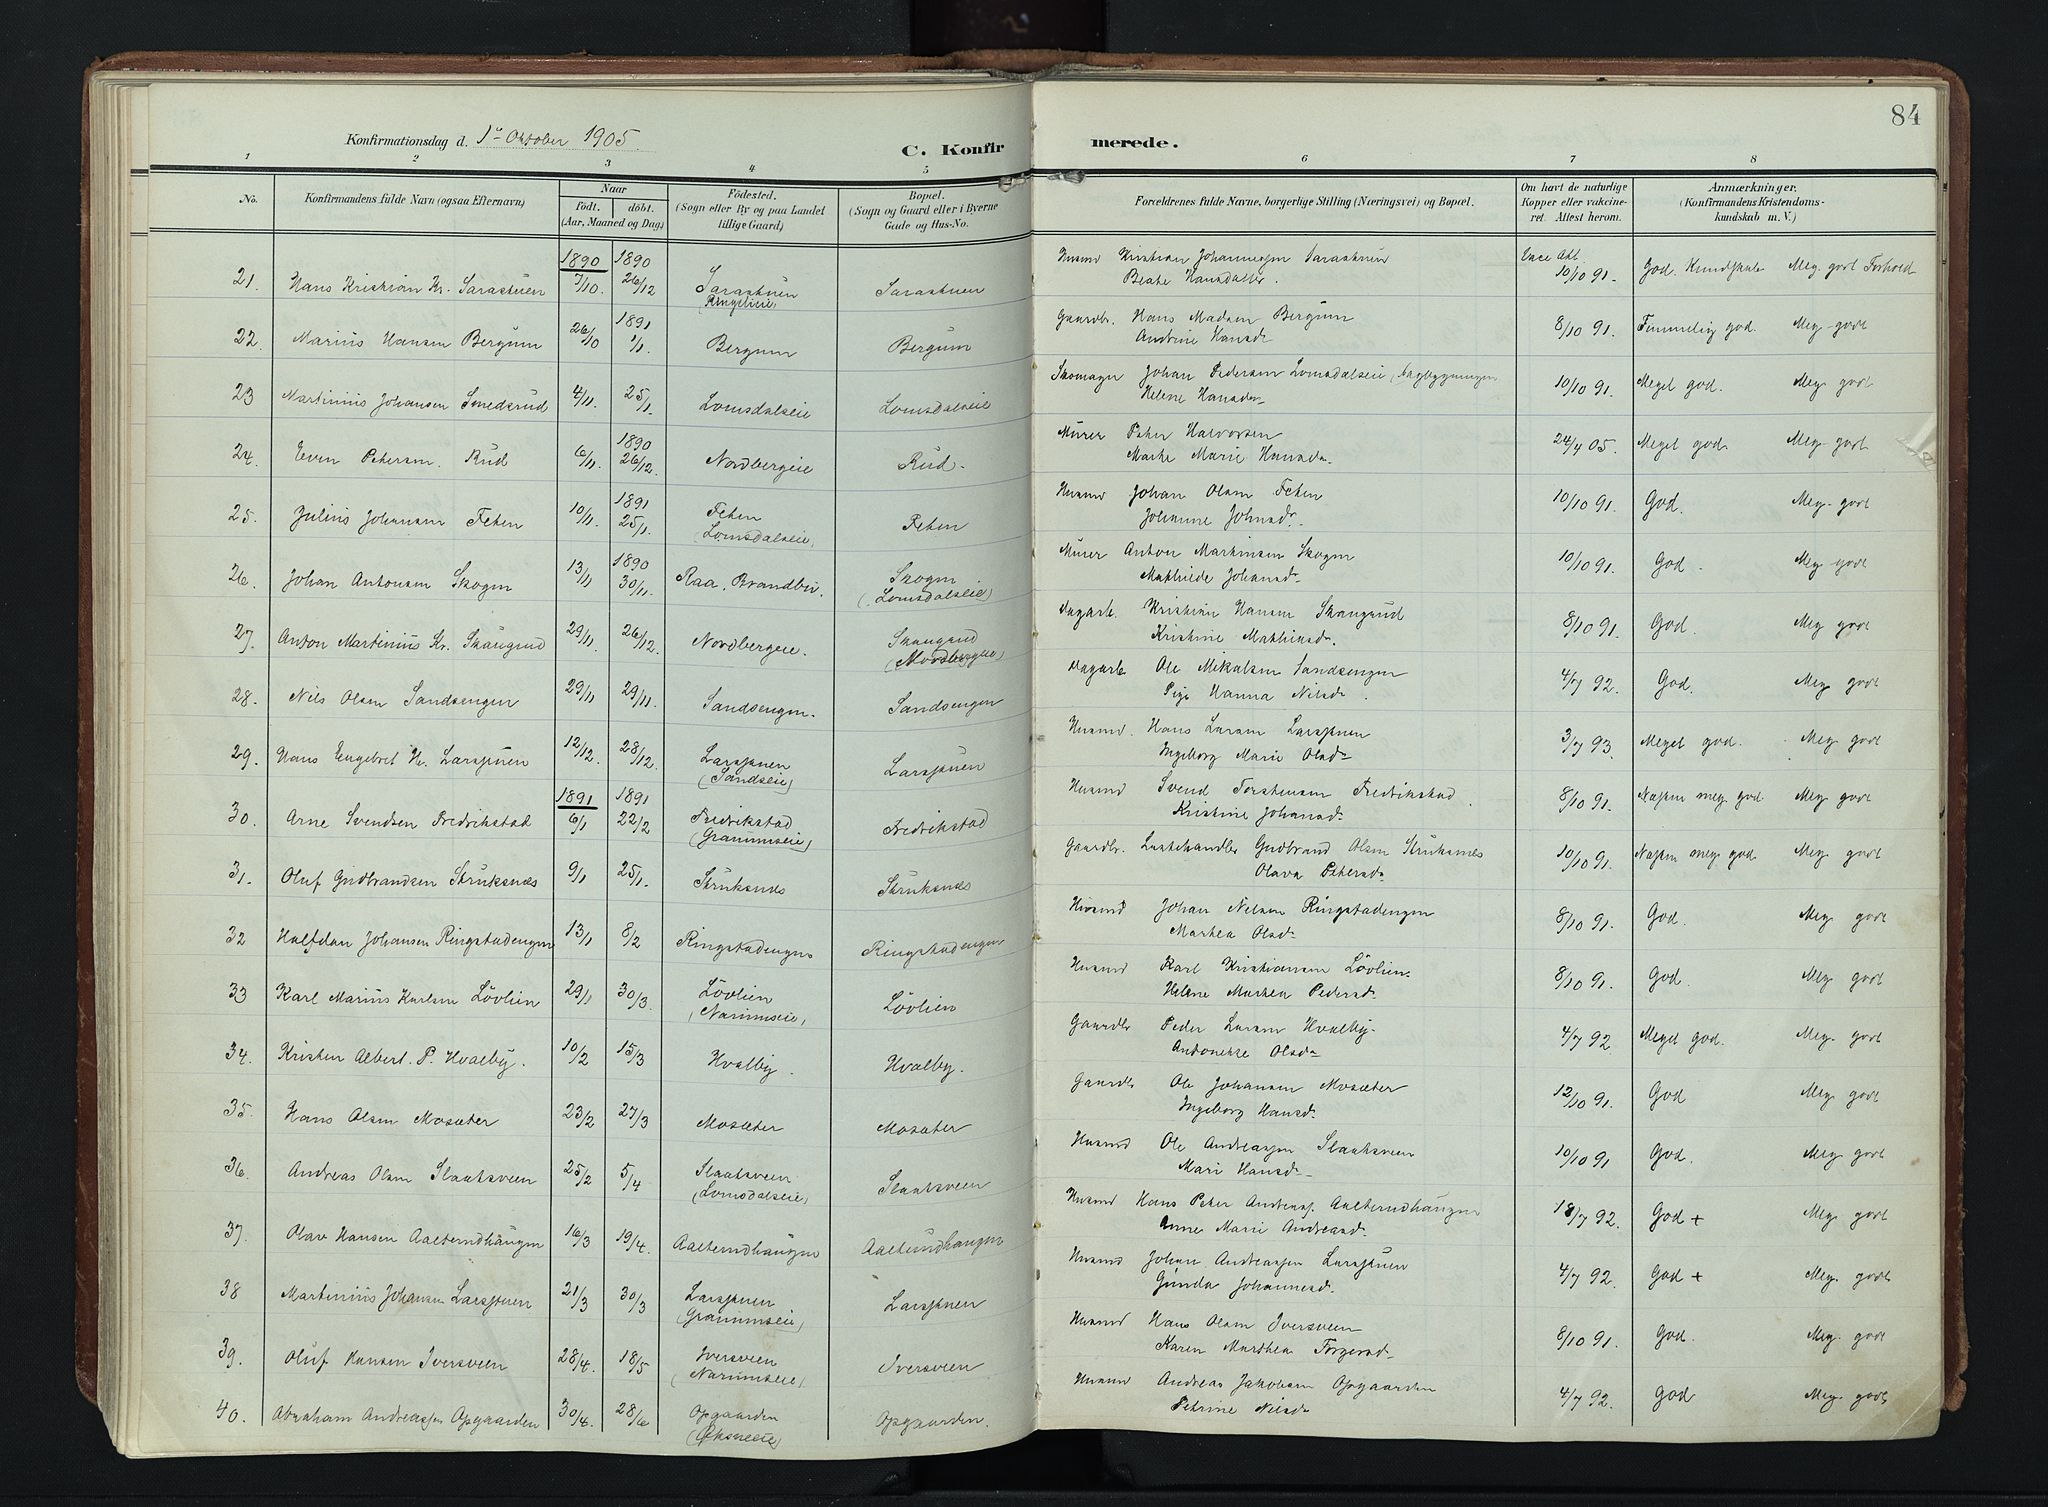 84
Konfirmationsdag d. 1ste Oktober 1905.
C. Konfirmerede.
1 2 3 4 5 6 7 8
No. Konfirmandens fulde Navn (ogsaa Efternavn) Naar født. døbt. (Aar, Maaned og Dag) Fødested. (Sogn eller By og paa Landet tillige Gaard) Bopæl. (Sogn og Gaard eller i Byerne Gade og Hus-No. Forældrenes fulde Navne, borgerlige Stilling (Næringsvei) og Bopæl. Om havt de naturlige Kopper eller vakcineret. Attest herom. Anmærkninger. (Konfirmandens Kristendomskundskab m. V.)
1890 1890
21. Hans Kristian Kr. Sarastuen 7/10. 26/12 Sarastuen (Ringelieie) Sarastuen Husmd Kristian Johannessen Sarastuen
Beate Hansdatter. Vacc Att 10/10 91. God Kundskab Meg. godt Forhold
22. Marius Hansen Bergum 26/10 1891 1/1. Bergum Bergum Gaardbr. Hans Madsen Bergum
Andrine Hansdr 8/10 91. Temmelig god. Meg. godt
23 Martinius Johansen Smedsrud 4/11. 25/1. Lomsdalseie Lomsdalseie Skomager Johan Pedersen Lomsdalseie
Helene Hansdr 10/10 91. Meget god. Meg. godt
24. Even Petersen Rud 6/11. 1890 26/12. Nordbergeie Rud. Murer Peter Halvorsen
Marthe Marie Hansdr 24/4 05. Meget god. Meg. godt
25. Julius Johansen Feten 10/11. 1891 25/1. Feten (Lomsdalseie) Feten Husmd Johan Olsen Feten
Johanne Johnsdr. 10/10 91. God. Meg. godt
26. Johan Antonsen Skogen 13/11 1890 30/11. Raa, Brandbu. Skogen (Lomsdalseie) Murer Anton Martinsen Skogen
Mathilde Johansdr 10/10 91. God. Meg. godt
27. Anton Martinius Kr. Skaugrud 29/11 26/12. Nordbergeie. Skaugrud (Nordbergeie) Dagarb. Kristian Hansen Skaugrud
Kristine Mathisdr 8/10 91. God. Meg. godt
28. Nils Olsen Sandsengen 29/11 29/11. Sandsengen. Sandsengen Dagarb Ole Mikalsen Sandsengen
Pige Hanna Nilsdr. 4/7 92. God. Meg. godt
29. Hans Engebret H. Larsstuen 12/12. 28/12. Larsstuen (Sandseie) Larsstuen Husmd. Hans Larsen Larsstuen
Ingeborg Marie Olsdr 3/7 93 Meget god. Meg. godt
30. Arne Svendsen Fredrikstad 1891 6/1 1891 22/2 Fredrikstad (Granumseie) Fredrikstad Husmd Svend Torstensen Fredrikstad.
Kristine Johansdr 8/10 91. Næsten meg. god Meg godt
31. Oluf Gudbrandsen Struksnæs 9/1 25/1. Struksnæs Struksnæs Gaardbr. Lastehandler Gudbrand Olsen Struksnæs
Olava Petersdr 10/10 91. Næsten meg. god Meg. godt
32 Halfdan Johansen Ringstadengen 13/1 8/2 Ringstadengen Ringstadengen Husmd Johan Nilsen Ringstadengen
Marthea Olsdr 8/10 91. God. Meg. godt
33 Karl Marius Karlsen Løvlien 29/1 30/3. Løvlien (Narumseie) Løvlien Husmd Karl Kristiansen Løvlien
Helene Marthea Pedersdr. 8/10 91. God. Meg. godt
34. Kristen Albert P. Hvalby. 10/2 15/3 Hvalby. Hvalby. Gaardbr Peder Larsen Hvalby.
Antonette Olsdr 4/7 92. Meget god. Meg. godt
35. Hans Olsen Mosæter 23/2 27/3 Mosæter Mosæter Gaardbr Ole Johansen Mosæter
Ingeborg Hansdr. 12/10 91. God Meg. godt
36. Andreas Olsen Slaatsveen 25/2 5/4 Slaatsveen (Lomsdalseie) Slaatsveen Husmd Ole Andreassen Slaatsveen
Mari Hansdr 10/10 91 God. Meg. godt
37. Olav Hansen Aalterudhaugen 16/3 19/4. Aalterudhaugen Aalterudhaugen Husmd Hans Peter Andreass. Aalterudhaugen
Anne Marie Andreasdr. 18/7 92. God + Meg. godt
38 Martinius Johansen Larsstuen 21/3 30/3 Larsstuen (Granumseie) Larsstuen Husmd Johan Andreassen Larsstuen
Gunda Johannesdr. 4/7 92. God + Meg. godt
39. Oluf Hansen Iversveen 28/4. 18/5 Iversveen (Narumseie) Iversveen Husmd Hans Olsen Iversveen
Karen Marthea Torgersdr 8/10 91. God. Meg. godt
40. Abraham Andreassen Opgaarden 30/4. 28/6 Opgaarden Opgaarden. Husmd Andreas Jakobsen Opgaarden
Petrine Nilsdr 4/7 92. God Meg. godt